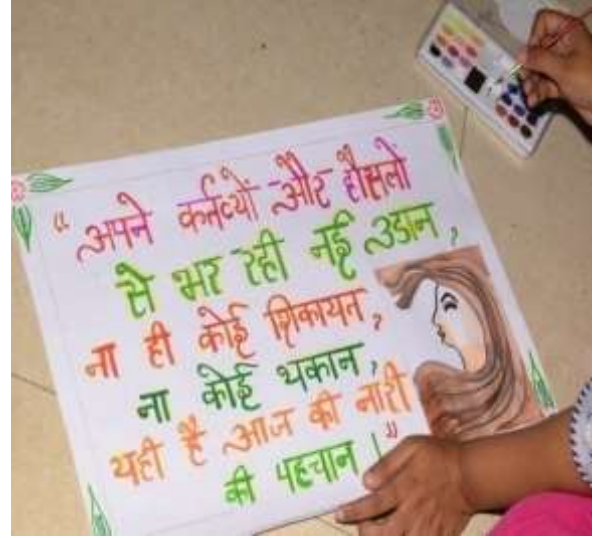 “अपने कर्तव्यों और हौसलों
से भर रही नई उडान,
ना ही कोई शिकायत,
ना कोई थकान,
यही है आज की नारी
की पहचान।”